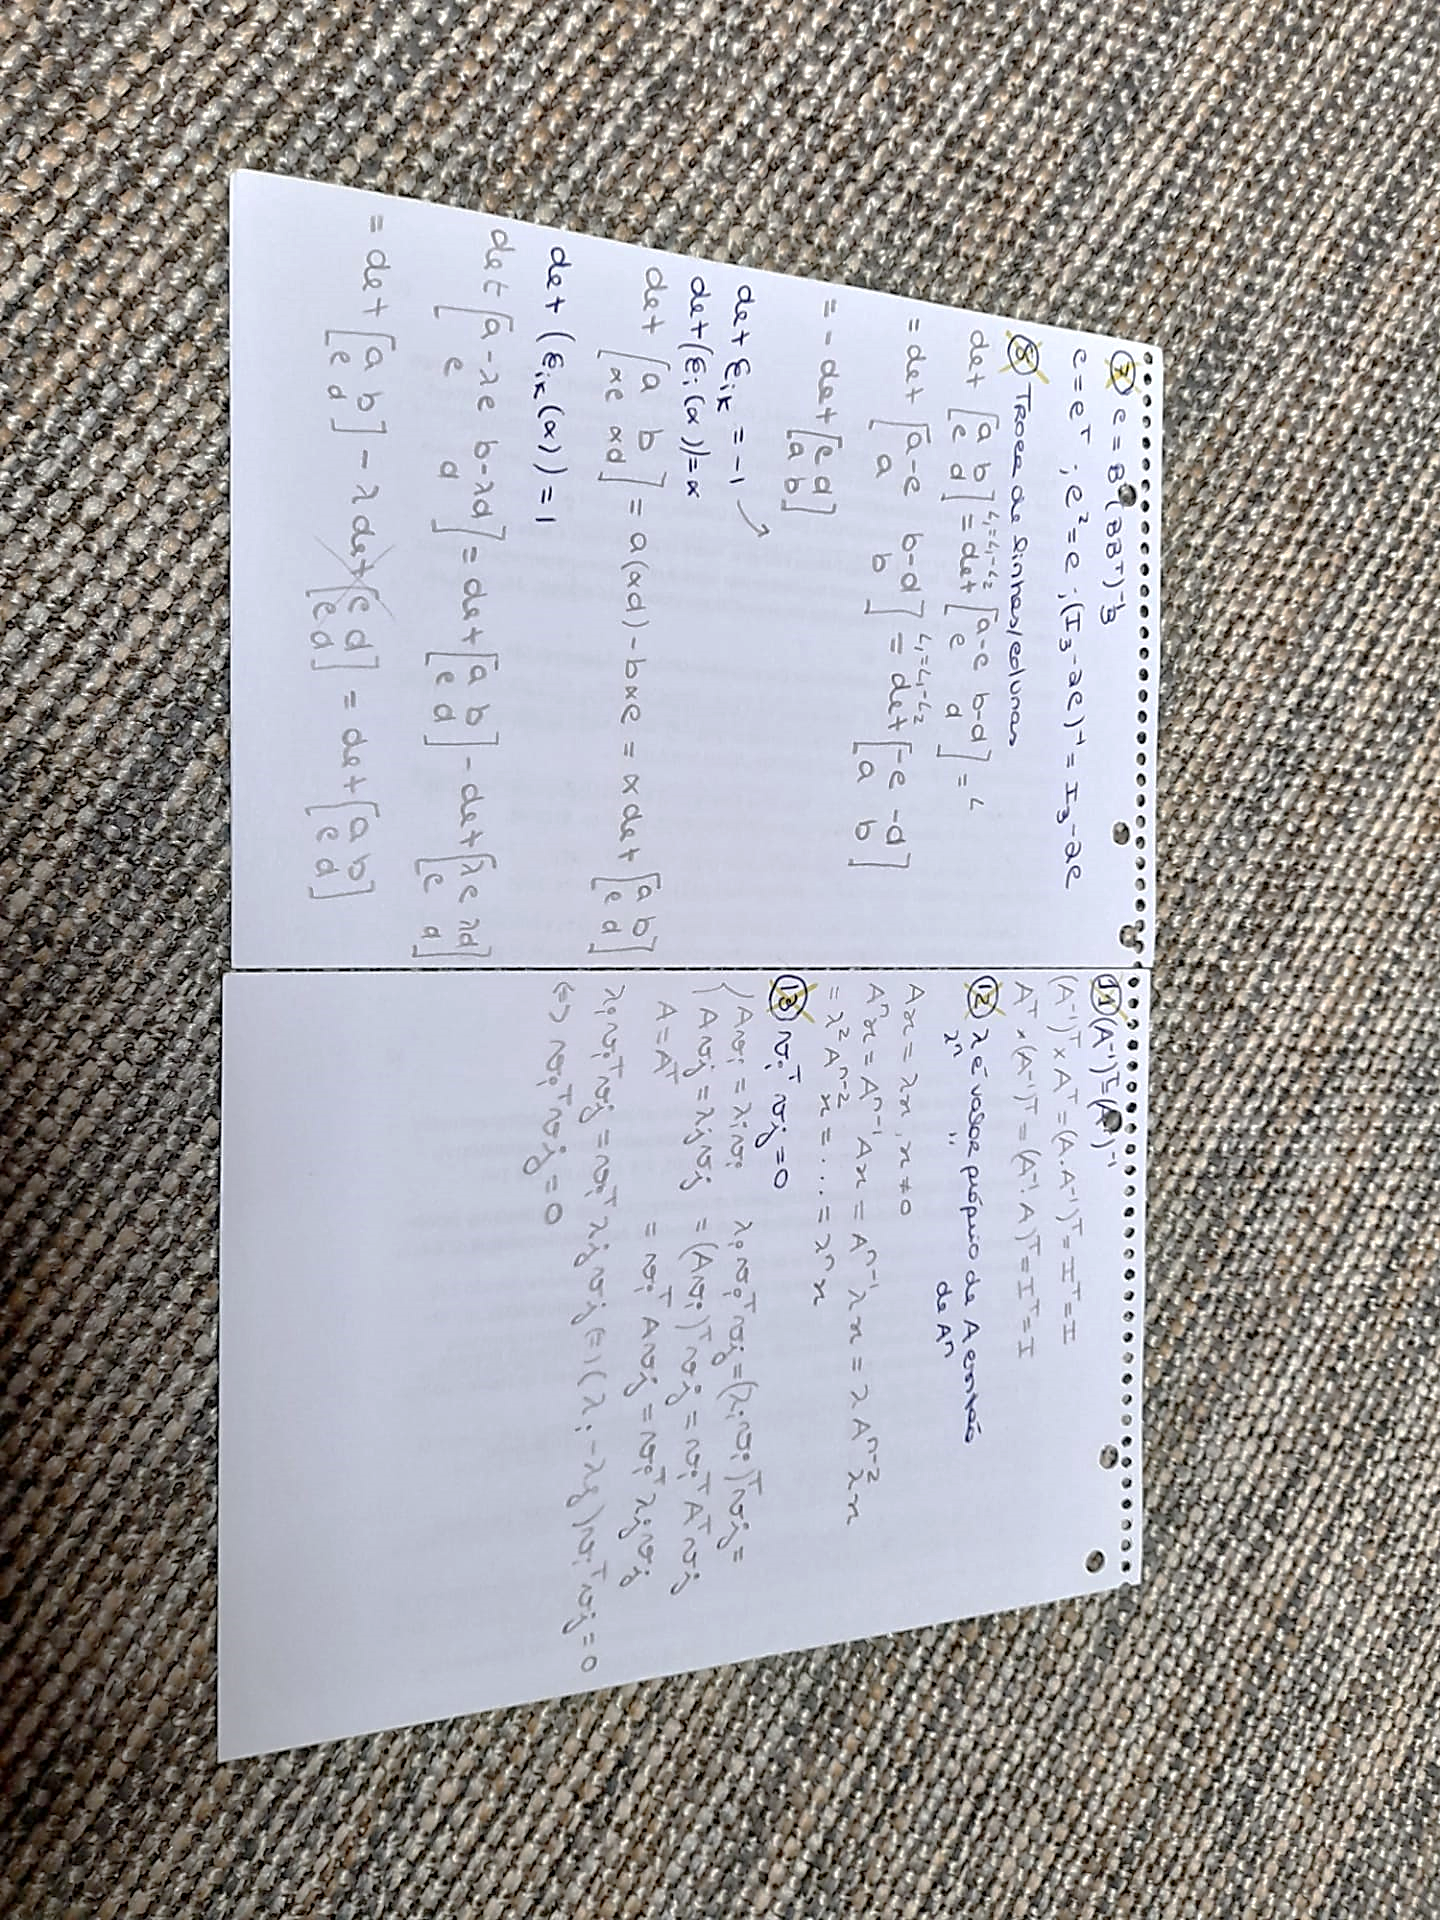 ⑦ C = Bᵀ(BBᵀ)⁻¹B
C = Cᵀ ; C² = C ; (I₃ - 2C)⁻¹ = I₃ - 2C
⑧ TROCA de linhas/colunas
det [a b; c d] =^{L₁=L₁-L₂} det [a-c b-d; c d] =^{L}
= det [a-c b-d; a b] =^{L₁=L₁-L₂} det [-c -d; a b]
= - det [c d; a b]
det E_{ik} = -1 ↗
det(E_i(α)) = α
det [a b; αc αd] = a(αd) - bαc = α det [a b; c d]
det (E_{ik}(α)) = 1
det [a-λc b-λd; c d] = det [a b; c d] - det [λc λd; c d]
= det [a b; c d] - λ det [c d; c d] = det [a b; c d]
⑪ (A⁻¹)ᵀ = (Aᵀ)⁻¹
(A⁻¹)ᵀ × Aᵀ = (A.A⁻¹)ᵀ = Iᵀ = I
Aᵀ × (A⁻¹)ᵀ = (A⁻¹.A)ᵀ = Iᵀ = I
⑫ λ é valor próprio de A então
λⁿ " de Aⁿ
Ax = λx, x ≠ 0
Aⁿx = Aⁿ⁻¹Ax = Aⁿ⁻¹λx = λAⁿ⁻²λx
= λ²Aⁿ⁻²x = ... = λⁿx
⑬ vᵢᵀ vⱼ = 0
{ Avᵢ = λᵢvᵢ λᵢvᵢᵀvⱼ = (λᵢvᵢ)ᵀvⱼ =
{ Avⱼ = λⱼvⱼ = (Avᵢ)ᵀvⱼ = vᵢᵀAᵀvⱼ
A = Aᵀ = vᵢᵀAvⱼ = vᵢᵀλⱼvⱼ
λᵢvᵢᵀvⱼ = vᵢᵀλⱼvⱼ (=) (λᵢ - λⱼ)vᵢᵀvⱼ = 0
(=) vᵢᵀvⱼ = 0